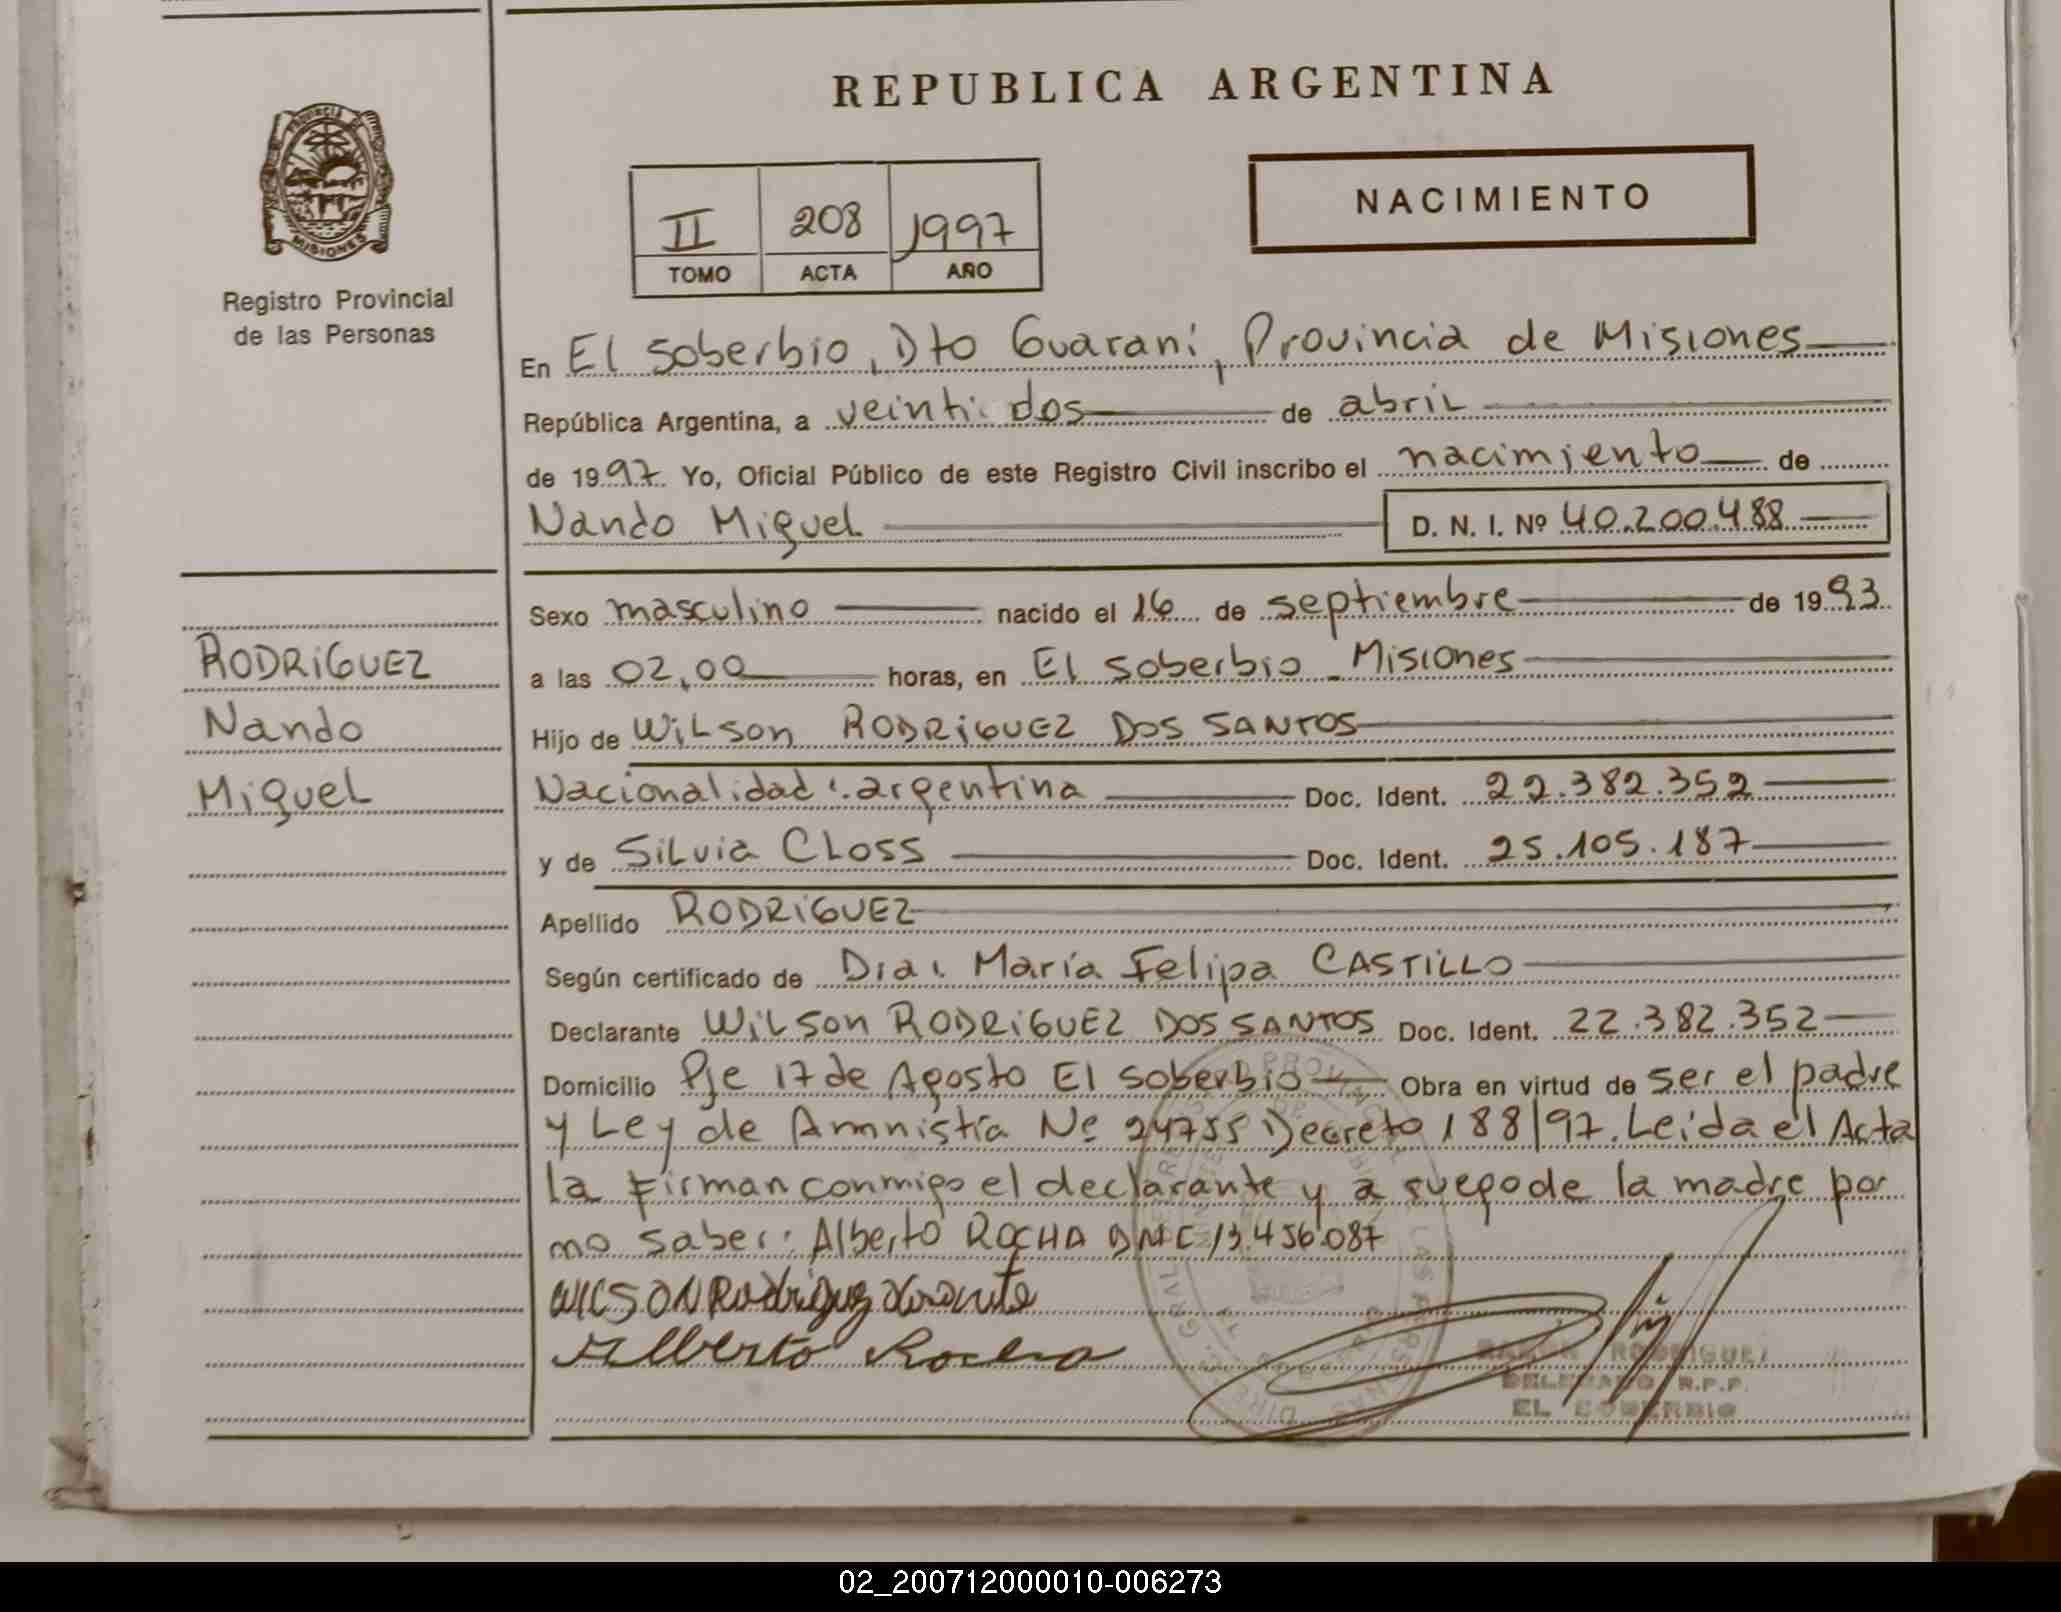 REPUBLICA ARGENTINA
PROVINCIA DE
MISIONES
Registro Provincial
de las Personas
NACIMIENTO
II 208 1997
TOMO ACTA AÑO
En El Soberbio, Dto Guaraní, Provincia de Misiones
República Argentina, a veinti dos de abril
de 1997 Yo, Oficial Público de este Registro Civil inscribo el nacimiento de
Nando Miguel D. N. I. Nº 40.200.488
RODRIGUEZ
Nando
Miguel
Sexo masculino nacido el 16 de septiembre de 1993
a las 02,00 horas, en El Soberbio Misiones
Hijo de Wilson RODRIGUEZ DOS SANTOS
Nacionalidad: argentina Doc. Ident. 22.382.352
y de Silvia CLOSS Doc. Ident. 25.105.187
Apellido RODRIGUEZ
Según certificado de Dra. María Felipa CASTILLO
Declarante Wilson RODRIGUEZ DOS SANTOS Doc. Ident. 22.382.352
Domicilio Pje 17 de Agosto El Soberbio Obra en virtud de ser el padre
y Ley de Amnistía Nº 24755 Decreto 188/97. Leida el Acta
la firman conmigo el declarante y a ruego de la madre por
no saber: Alberto ROCHA 13.456.087
WILSON Rodriguez
Alberto Rocha
RODRIGUEZ
DELEGADO R.P.P.
EL SOBERBIO
02_200712000010-006273